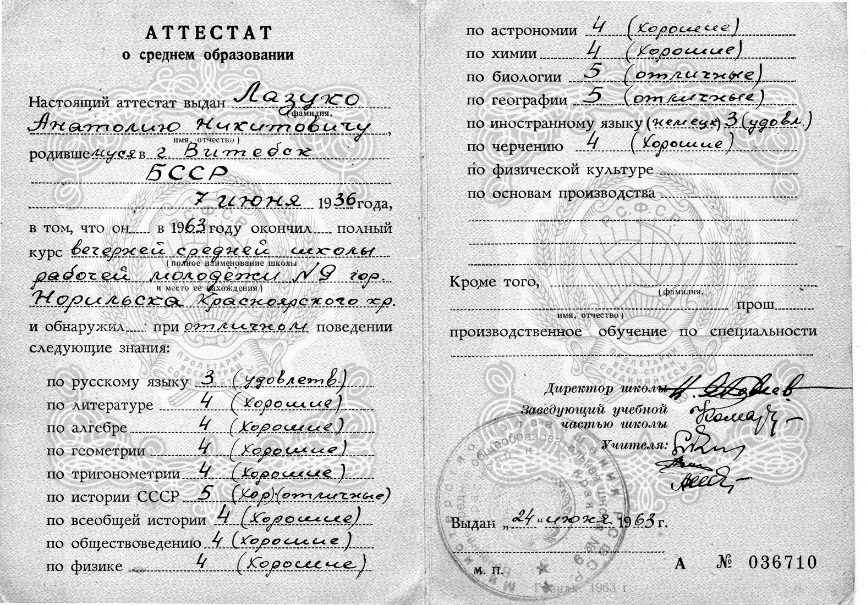 АТТЕСТАТ
о среднем образовании
Настоящий аттестат выдан Лазуко
(фамилия,
Анатолию Никитовичу,
имя, отчество)
родившемуся в г Витебск
БССР
7 июня 1936 года,
в том, что он в 1963 году окончил полный
курс вечерней средней школы
(полное наименование школы
рабочей молодежи №9 гор.
и место ее нахождения)
Норильска Красноярского кр.
и обнаружил при отличном поведении
следующие знания:
по русскому языку 3 (удовлетв.)
по литературе 4 (хорошие)
по алгебре 4 (хорошие)
по геометрии 4 (хорошие)
по тригонометрии 4 (хорошие)
по истории СССР 5 (хор) (отличные)
по всеобщей истории 4 (хорошие)
по обществоведению 4 (хорошие)
по физике 4 (хорошие)
по астрономии 4 (хорошие)
по химии 4 (хорошие)
по биологии 5 (отличные)
по географии 5 (отличные)
по иностранному языку (немецк) 3 (удовл.)
по черчению 4 (хорошие)
по физической культуре
по основам производства
РСФСР
Кроме того,
(фамилия,
прош
имя, отчество)
производственное обучение по специальности
ПРОЛЕТАРИИ
ВСЕХ СТРАН
СОЕДИНЯЙТЕСЬ
Директор школы
Заведующий учебной
частью школы
Учителя:
Выдан „24" июня 1963 г.
М. П.
А № 036710
Гознак. 1963 г.